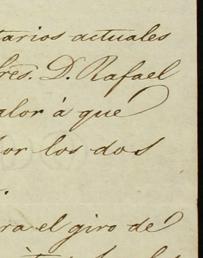 tarios actuales
res. D. Rafael
alor á que
or los dos
.
ra el giro de